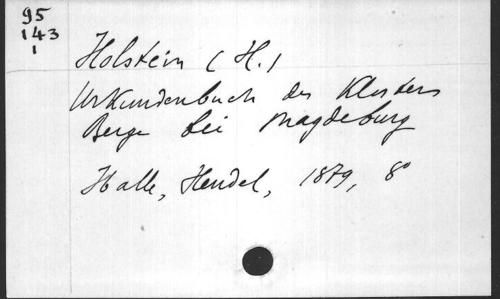 95
143
1
Holstein (H.)
Urkundenbuch des Klosters
Berge bei Magdeburg
Halle, Hendel, 1879, 8°